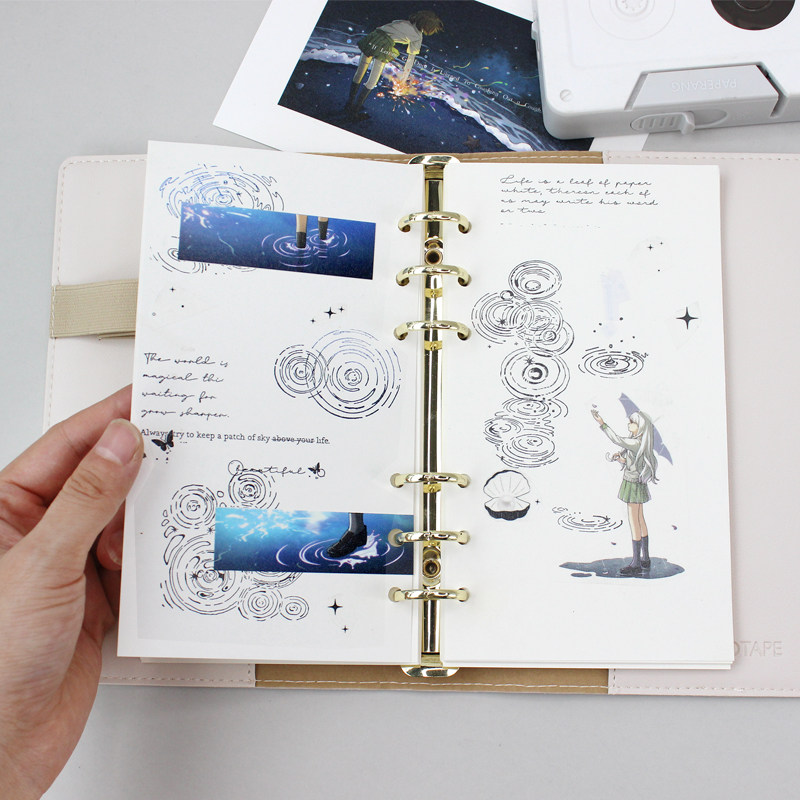 "It Lofty
Life is a leaf of paper
white, thereon each of
us may write his word
or two
The world is
magical thi
waiting for
grow sharper.
Always try to keep a patch of sky above your life.
Beautiful
PAPERANG
OTAPE